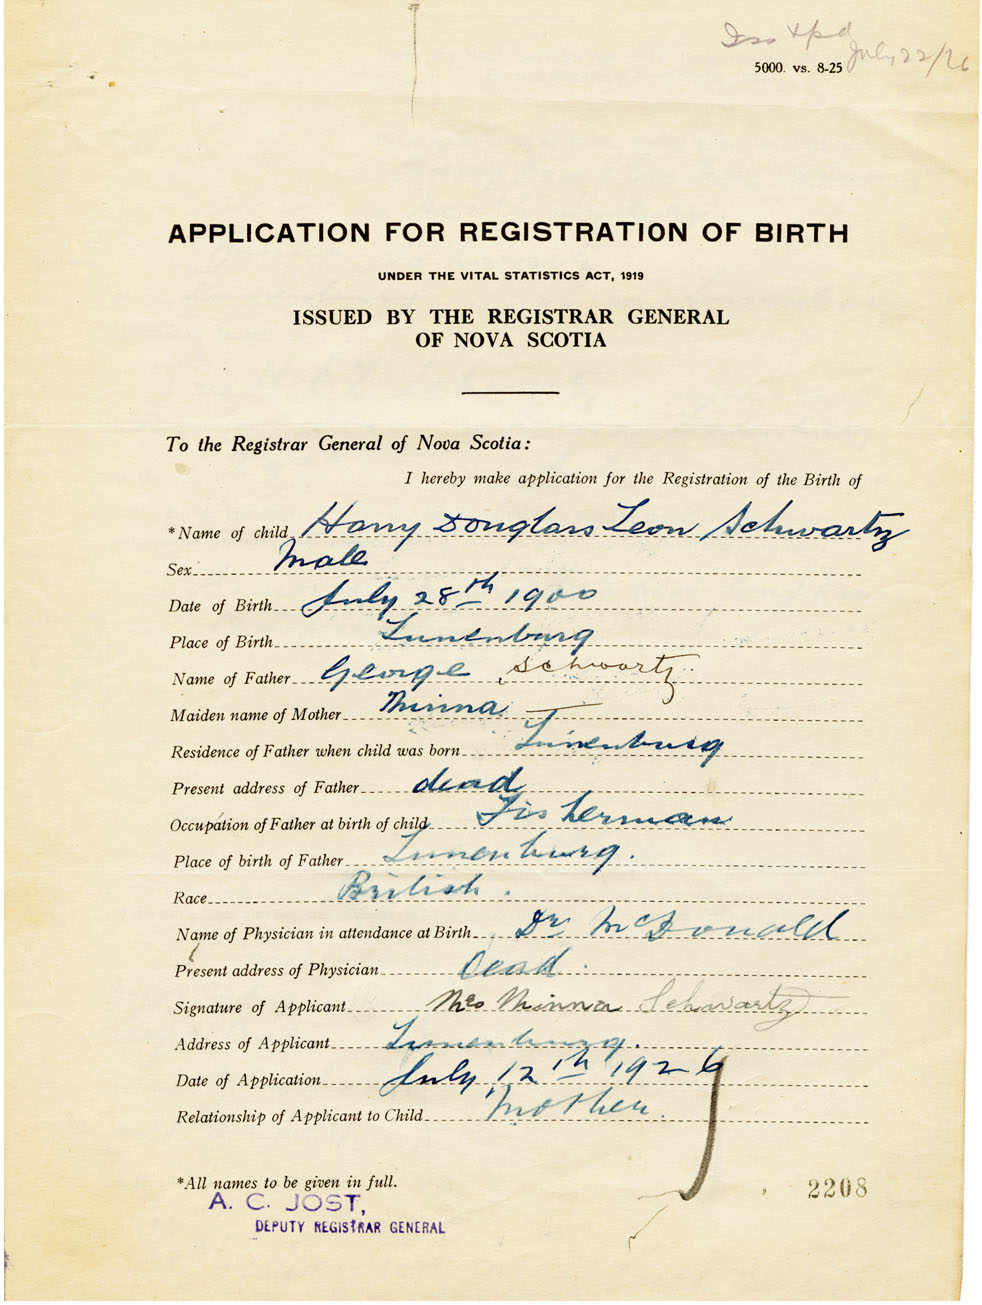 Iss & pd
July 22/26
5000. vs. 8-25
APPLICATION FOR REGISTRATION OF BIRTH
UNDER THE VITAL STATISTICS ACT, 1919
ISSUED BY THE REGISTRAR GENERAL
OF NOVA SCOTIA
To the Registrar General of Nova Scotia:
I hereby make application for the Registration of the Birth of
*Name of child Harry Douglass Leon Schwartz
Sex Male
Date of Birth July 28th 1900
Place of Birth Lunenburg
Name of Father George Schwartz
Maiden name of Mother Minna
Residence of Father when child was born Lunenburg
Present address of Father dead
Occupation of Father at birth of child Fisherman
Place of birth of Father Lunenburg.
Race British.
Name of Physician in attendance at Birth Dr McDonald
Present address of Physician Dead.
Signature of Applicant Mrs Minna Schwartz
Address of Applicant Lunenburg.
Date of Application July 12th 1926
Relationship of Applicant to Child Mother.
*All names to be given in full.
A. C. JOST,
DEPUTY REGISTRAR GENERAL
2208